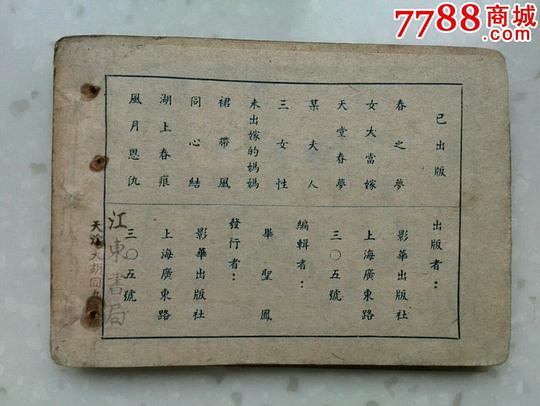 7788商城
已出版
春之夢
女大當嫁
天堂春夢
某夫人
三女性
未出嫁的媽媽
裙帶風
同心結
湖上春痕
風月恩仇
出版者：
影華出版社
上海廣東路
三〇五號
編輯者：
畢聖鳳
發行者：
影華出版社
上海廣東路
三〇五號
江東書局